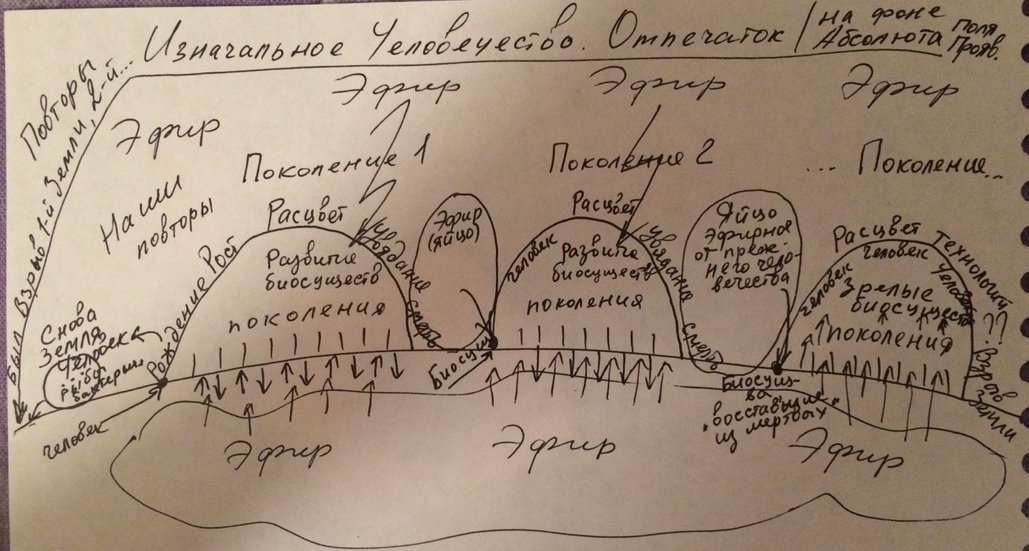 Изначальное Человечество. Отпечаток / на фоне
Абсолюта Поля
Прояв.
Повторы
Был Взрыв 1-й Земли, 2-й...
Эфир
Эфир
Эфир
Эфир
Наши
повторы
Поколение 1
Поколение 2
... Поколение...
Рождение Рост
Расцвет
Увядание
смерть
Развитие
биосуществ
поколения
Эфир
(яйцо)
Биосущ
человек
Расцвет
Увядание
смерть
Развитие
биосуществ
поколения
Яйцо
Эфирное
от преж-
него чело-
вечества
человек
Расцвет
человек
Технологий
Человек
Зрелые
биосуществ
поколения
??
Взрыв
Земли
Снова
Земля
Человека
рыбы
человек
Биосущ-
ва
"восставшие
из мертвых"
Эфир
Эфир
Эфир